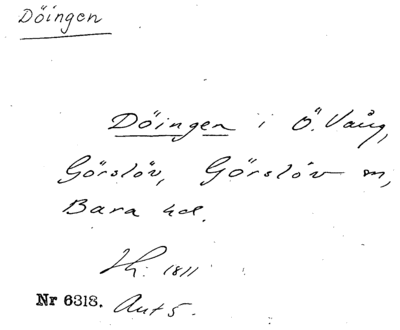 Döingen
Döingen i Ö. Vång,
Görslöv, Görslöv sn,
Bara hd.
Lh: 1811
Nr 6318. Ant 5.